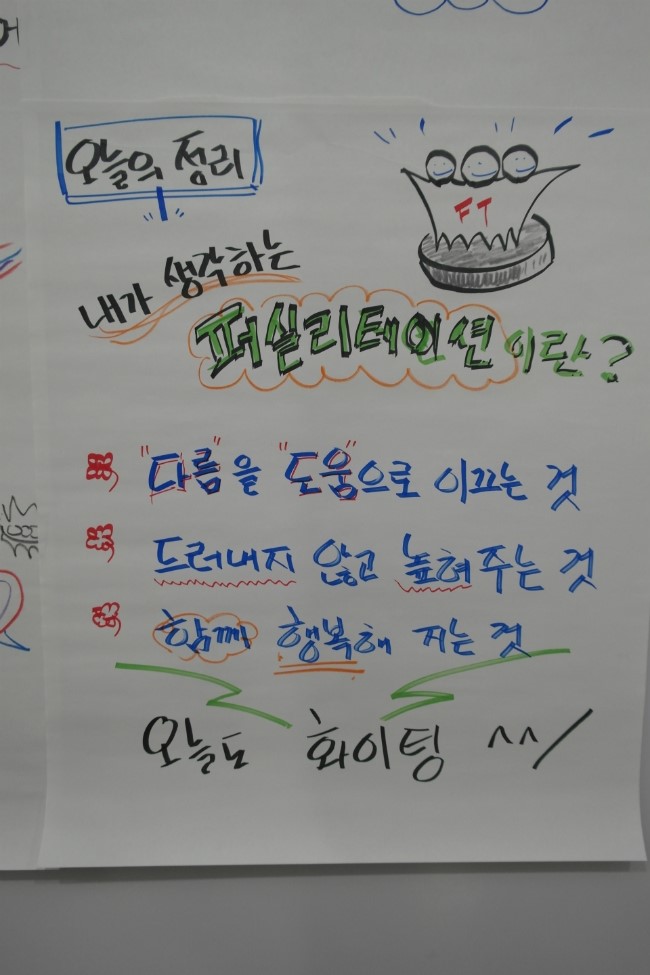 오늘의 정리
FT
내가 생각하는
퍼실리테이션이란?
"다름"을 "도움"으로 이끄는 것
드러내지 않고 높혀주는 것
함께 행복해 지는 것
오늘도 화이팅 ^^/